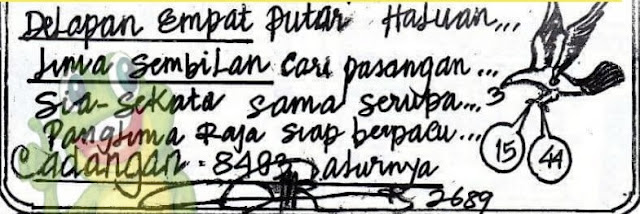 Delapan Empat Putar Haluan...
Lima Sembilan Cari pasangan...
Sia-Sekata sama serupa...3
Panglima Raja siap berpacu...
15 44
Cadangan = 8403 aturnya
2689